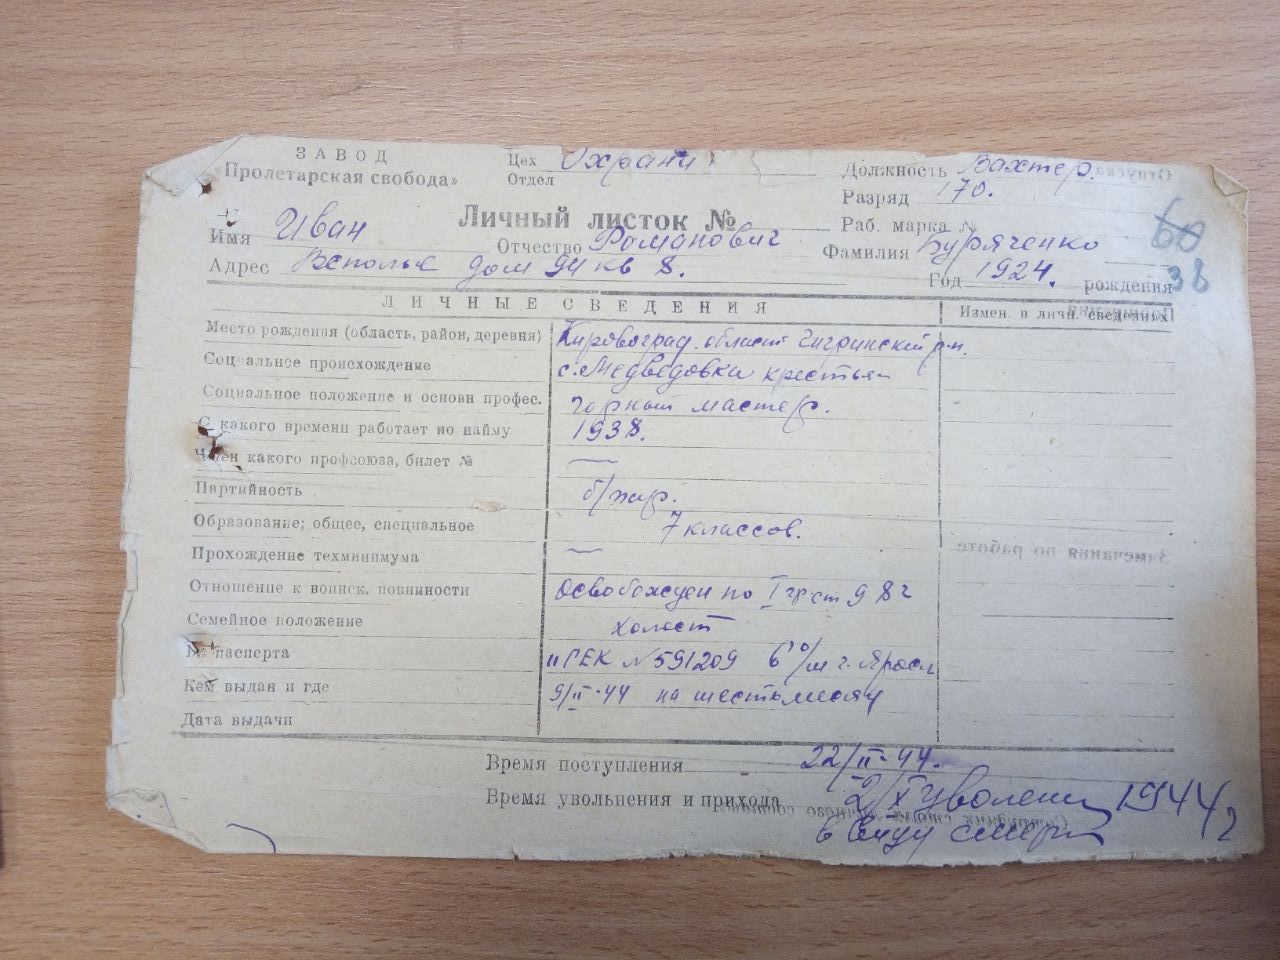 ЗАВОД
«Пролетарская свобода»
Цех Охрани
Отдел
Должность Вахтер.
Разряд 170.
Личный листок №
Раб. марка №
60
38
Имя Иван Отчество Романович Фамилия Буряченко
Адрес Всполье дом 94 кв 8. Год 1924. рождения
ЛИЧНЫЕ СВЕДЕНИЯ
Измен. в личн. сведениях
Место рождения (область, район, деревня) Кировоград. область Чигринский р-н.
Социальное происхождение с. Медведовка крестьян
Социальное положение и основн профес. горный мастер.
С какого времени работает по найму 1938.
Член какого профсоюза, билет № —
Партийность б/пар.
Образование; общее, специальное 7 классов.
Прохождение техминимума —
Отношение к воинск. повинности Освобожден по I гр ст 9 8 г
Семейное положение холост
№ паспорта II ГЕК № 591209 6 о/м г. Яросл
Кем выдан и где 9/II-44 на шесть месяц
Дата выдачи
Время поступления 22/II-44.
Время увольнения и прихода 2/X уволен 1944 г
в виду смерти
Отпуска
Поощрения
Замечания по работе